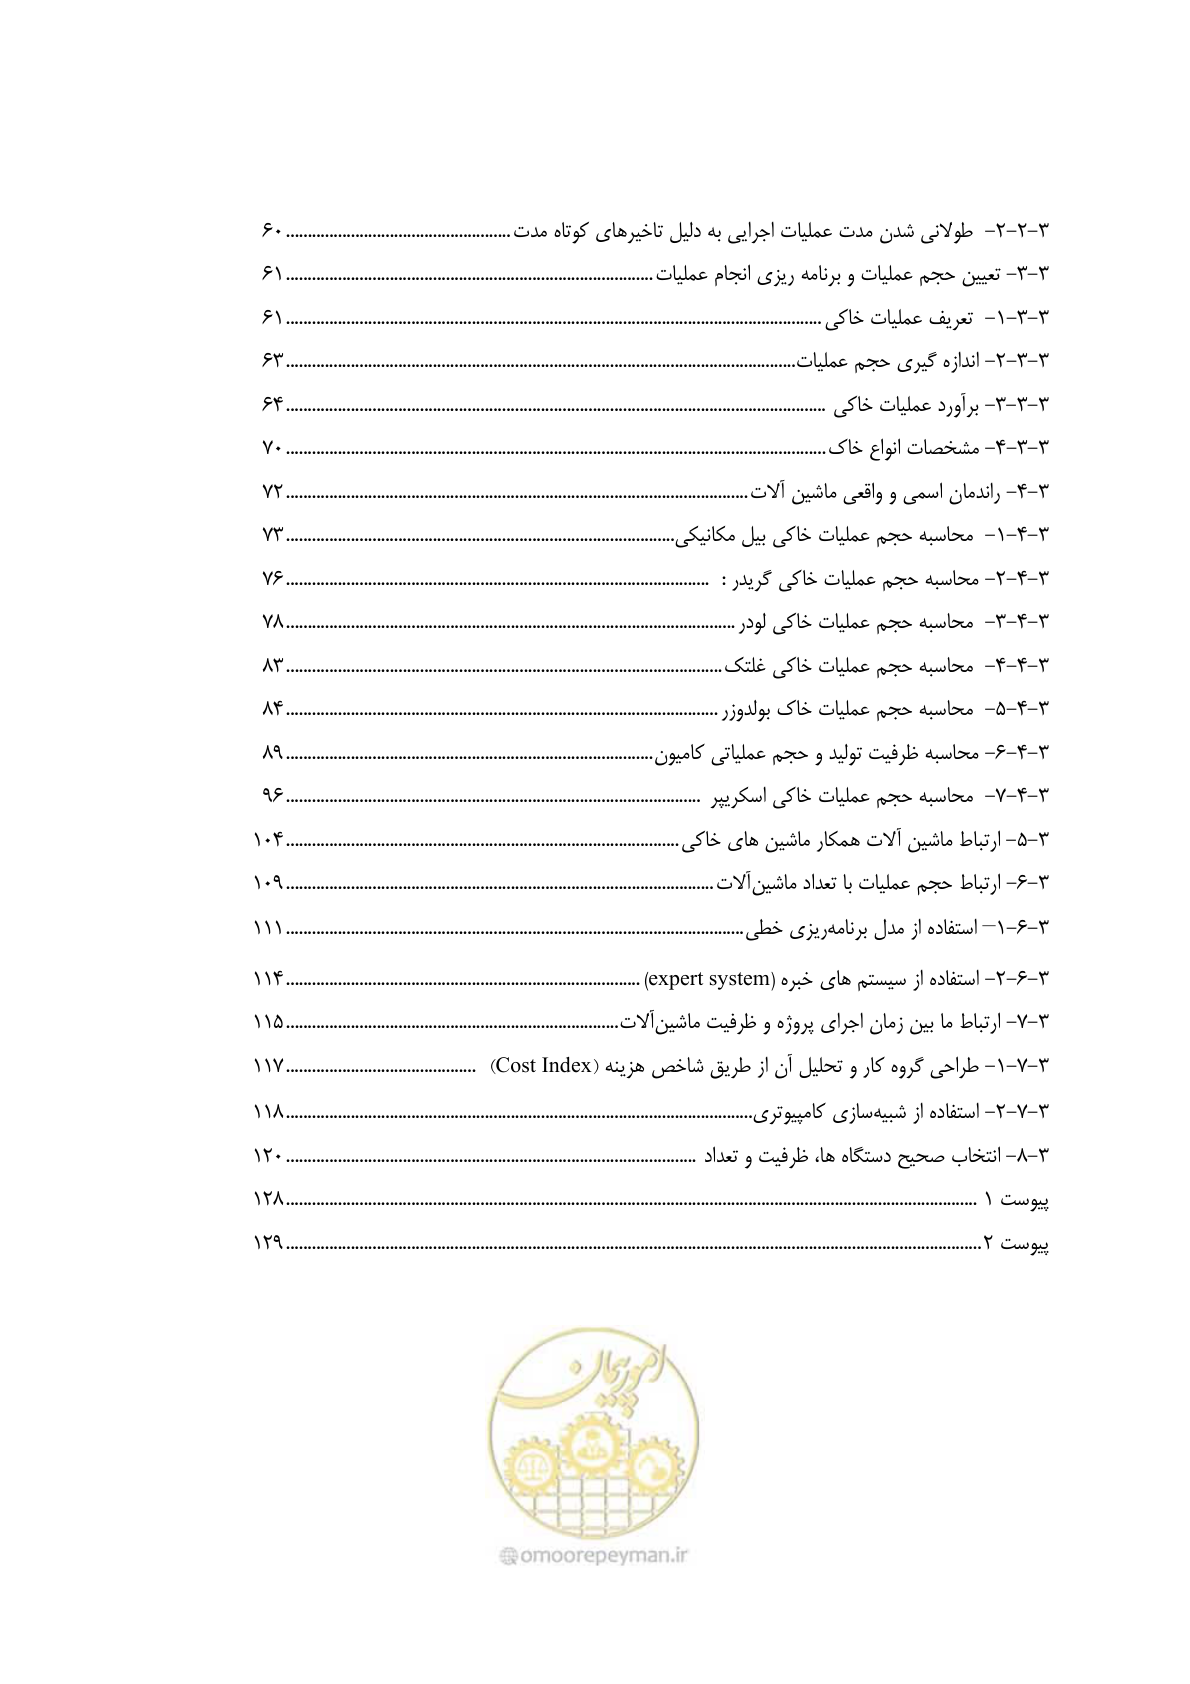 ۳-۲-۲- طولانی شدن مدت عملیات اجرایی به دلیل تاخیرهای کوتاه مدت ........ ۶۰
۳-۳- تعیین حجم عملیات و برنامه ریزی انجام عملیات ........ ۶۱
۳-۳-۱- تعریف عملیات خاکی ........ ۶۱
۳-۳-۲- اندازه گیری حجم عملیات ........ ۶۳
۳-۳-۳- برآورد عملیات خاکی ........ ۶۴
۳-۳-۴- مشخصات انواع خاک ........ ۷۰
۳-۴- راندمان اسمی و واقعی ماشین آلات ........ ۷۲
۳-۴-۱- محاسبه حجم عملیات خاکی بیل مکانیکی ........ ۷۳
۳-۴-۲- محاسبه حجم عملیات خاکی گریدر : ........ ۷۶
۳-۴-۳- محاسبه حجم عملیات خاکی لودر ........ ۷۸
۳-۴-۴- محاسبه حجم عملیات خاکی غلتک ........ ۸۳
۳-۴-۵- محاسبه حجم عملیات خاک بولدوزر ........ ۸۴
۳-۴-۶- محاسبه ظرفیت تولید و حجم عملیاتی کامیون ........ ۸۹
۳-۴-۷- محاسبه حجم عملیات خاکی اسکریپر ........ ۹۶
۳-۵- ارتباط ماشین آلات همکار ماشین های خاکی ........ ۱۰۴
۳-۶- ارتباط حجم عملیات با تعداد ماشین‌آلات ........ ۱۰۹
۳-۶-۱- استفاده از مدل برنامه‌ریزی خطی ........ ۱۱۱
۳-۶-۲- استفاده از سیستم های خبره (expert system) ........ ۱۱۴
۳-۷- ارتباط ما بین زمان اجرای پروژه و ظرفیت ماشین‌آلات ........ ۱۱۵
۳-۷-۱- طراحی گروه کار و تحلیل آن از طریق شاخص هزینه (Cost Index) ........ ۱۱۷
۳-۷-۲- استفاده از شبیه‌سازی کامپیوتری ........ ۱۱۸
۳-۸- انتخاب صحیح دستگاه ها، ظرفیت و تعداد ........ ۱۲۰
پیوست ۱ ........ ۱۲۸
پیوست ۲ ........ ۱۲۹
امور پیمان
@omoorepeyman.ir